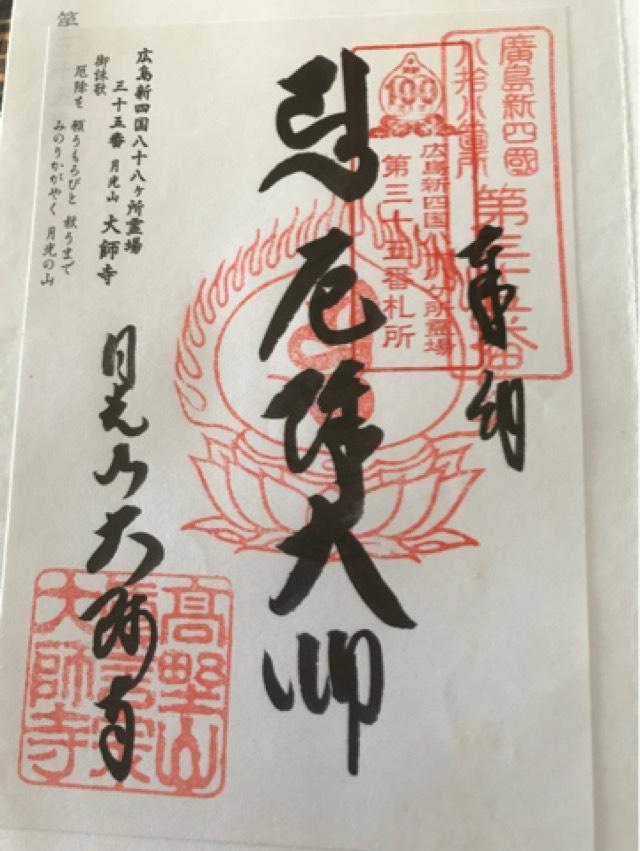 廣島新四國
八拾八箇所
奉納
100
広島新四国八十八ヶ所霊場
第三十五番札所
厄除大師
広島新四国八十八ヶ所霊場
三十五番 月光山 大師寺
御詠歌
厄除を 願うもろびと 救うまで
みのりかがやく 月光の山
月光山大師寺
髙野山
真言宗
大師寺